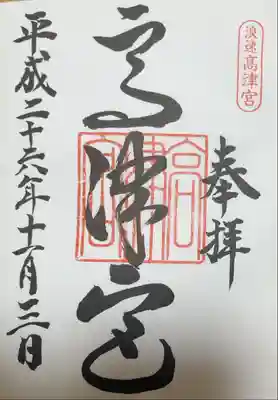 浪速高津宮
奉拝
高津宮
高津宮
平成二十六年十一月三日